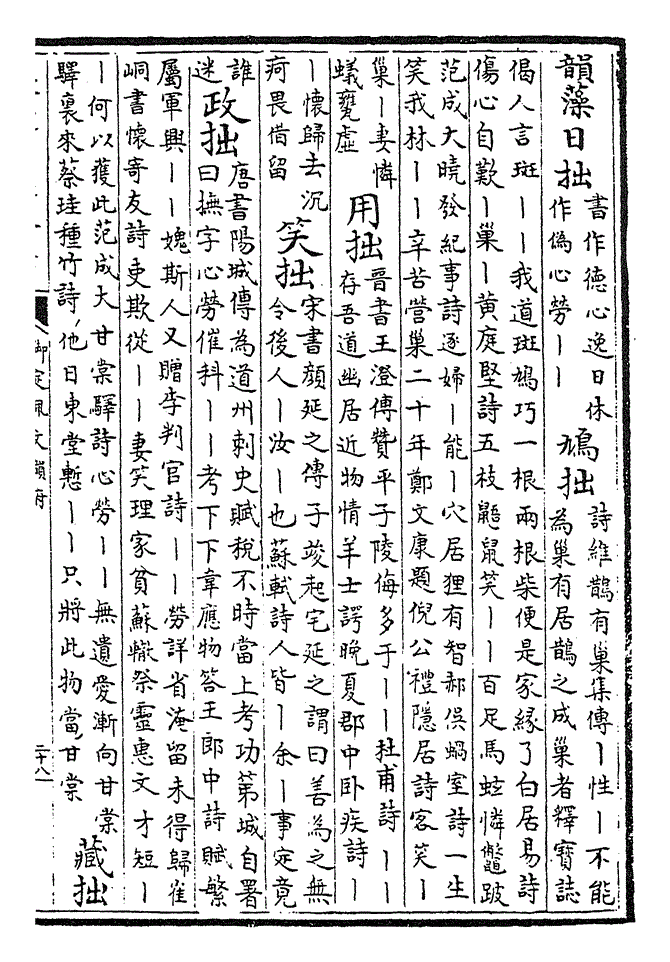 韻藻日拙
書作德心逸日休
作偽心勞丨丨
鳩拙
詩維鵲有巢集傳丨性丨不能
為巢有居鵲之成巢者釋寶誌
偈人言斑丨丨我道斑鳩巧一根兩根柴便是家緣了白居易詩
傷心自歎丨巢丨黃庭堅詩五枝鼯鼠笑丨丨百足馬蚿憐鼈跛
范成大曉發紀事詩逐婦丨能丨穴居狸有智郝俁蝸室詩一生
笑我林丨丨辛苦營巢二十年鄭文康題倪公禮隱居詩客笑丨
巢丨妻憐
蟻甕虛
用拙
晉書王澄傳贊平子陵侮多于丨丨杜甫詩丨丨
存吾道幽居近物情羊士諤晚夏郡中臥疾詩丨
丨懷歸去沉
疴畏借留
笑拙
宋書顏延之傳子竣起宅延之謂曰善為之無
令後人丨汝丨也蘇軾詩人皆丨余丨事定竟
誰
迷
政拙
唐書陽城傳為道州刺史賦稅不時當上考功第城自署
曰撫字心勞催科丨丨考下下韋應物答王郎中詩賦繁
屬軍興丨丨媿斯人又贈李判官詩丨丨勞詳省淹留未得歸崔
峒書懷寄友詩吏欺從丨丨妻笑理家貧蘇轍祭靈惠文才短丨
丨何以獲此范成大甘棠驛詩心勞丨丨無遺愛漸向甘棠
驛裏來蔡珪種竹詩他日東堂慙丨丨只將此物當甘棠
藏拙
御定佩文韻府
二十八